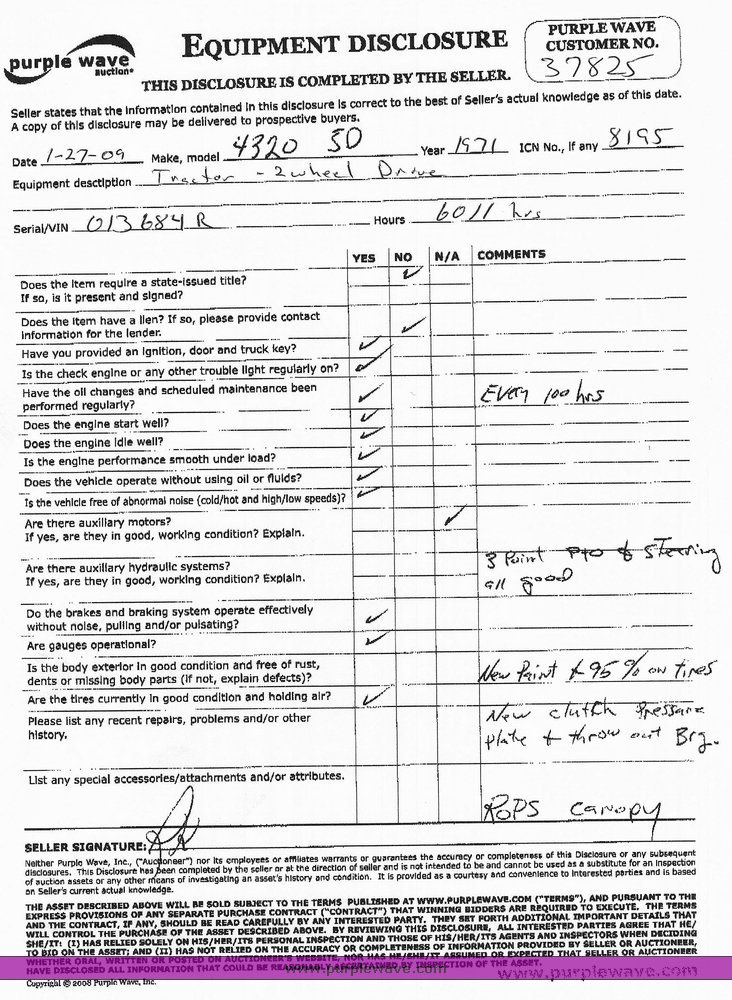 purple wave
auction®
EQUIPMENT DISCLOSURE
THIS DISCLOSURE IS COMPLETED BY THE SELLER.
PURPLE WAVE
CUSTOMER NO.
37825
Seller states that the information contained in this disclosure is correct to the best of Seller's actual knowledge as of this date.
A copy of this disclosure may be delivered to prospective buyers.
Date 1-27-09 Make, model 4320 JD Year 1971 ICN No., if any 8195
Equipment description Tractor - 2 wheel Drive
Serial/VIN 013684R Hours 6011 hrs
YES NO N/A COMMENTS
Does the item require a state-issued title?
If so, is it present and signed?
Does the item have a lien? If so, please provide contact
information for the lender.
Have you provided an ignition, door and truck key?
Is the check engine or any other trouble light regularly on?
Have the oil changes and scheduled maintenance been
performed regularly? Every 100 hrs
Does the engine start well?
Does the engine idle well?
Is the engine performance smooth under load?
Does the vehicle operate without using oil or fluids?
Is the vehicle free of abnormal noise (cold/hot and high/low speeds)?
Are there auxiliary motors?
If yes, are they in good, working condition? Explain.
Are there auxiliary hydraulic systems? 3 Point PTO & Steering
If yes, are they in good, working condition? Explain. all good
Do the brakes and braking system operate effectively
without noise, pulling and/or pulsating?
Are gauges operational?
Is the body exterior in good condition and free of rust,
dents or missing body parts (if not, explain defects)? New Paint & 95% on tires
Are the tires currently in good condition and holding air?
Please list any recent repairs, problems and/or other New clutch Pressure
history. plate & throw out Brg.
List any special accessories/attachments and/or attributes.
ROPS canopy
SELLER SIGNATURE:
Neither Purple Wave, Inc., ("Auctioneer") nor its employees or affiliates warrants or guarantees the accuracy or completeness of this Disclosure or any subsequent
disclosures. This Disclosure has been completed by the seller or at the direction of seller and is not intended to be and cannot be used as a substitute for an inspection
of auction assets or any other means of investigating an asset's history and condition. It is provided as a courtesy and convenience to interested parties and is based
on Seller's current actual knowledge.
THE ASSET DESCRIBED ABOVE WILL BE SOLD SUBJECT TO THE TERMS PUBLISHED AT WWW.PURPLEWAVE.COM ("TERMS"), AND PURSUANT TO THE
EXPRESS PROVISIONS OF ANY SEPARATE PURCHASE CONTRACT ("CONTRACT") THAT WINNING BIDDERS ARE REQUIRED TO EXECUTE. THE TERMS
AND THE CONTRACT, IF ANY, SHOULD BE READ CAREFULLY BY ANY INTERESTED PARTY. THEY SET FORTH ADDITIONAL IMPORTANT DETAILS THAT
WILL CONTROL THE PURCHASE OF THE ASSET DESCRIBED ABOVE. BY REVIEWING THIS DISCLOSURE, ALL INTERESTED PARTIES AGREE THAT HE/
SHE/IT: (I) HAS RELIED SOLELY ON HIS/HER/ITS PERSONAL INSPECTION AND THOSE OF HIS/HER/ITS AGENTS AND INSPECTORS WHEN DECIDING
TO BID ON THE ASSET; AND (II) HAS NOT RELIED ON THE ACCURACY OR COMPLETENESS OF INFORMATION PROVIDED BY SELLER OR AUCTIONEER,
WHETHER ORAL, WRITTEN OR POSTED ON AUCTIONEER'S WEBSITE, NOR HAS HE/SHE/IT ASSUMED OR EXPECTED THAT SELLER OR AUCTIONEER
HAVE DISCLOSED ALL INFORMATION THAT COULD BE REASONABLY ASCERTAINED BY INSPECTION OF THE ASSET.
www.purplewave.com
www.purplewave.com
Copyright © 2008 Purple Wave, Inc.